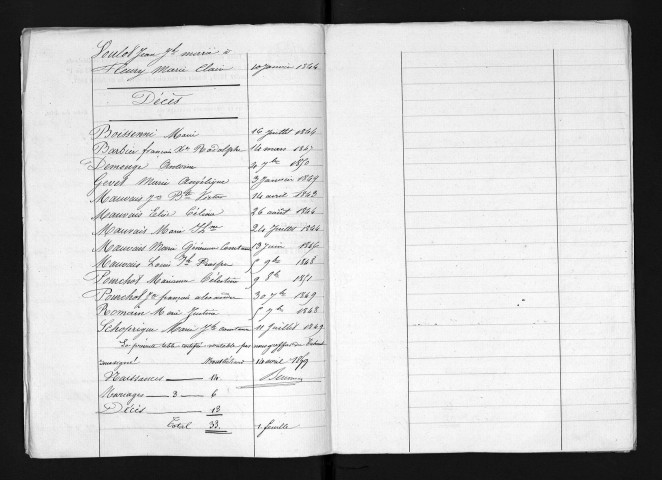 Loulot Jean Jh marié à
Fleury Marie Claire 10 janvier 1844
Décès
Boissenni Marie 16 juillet 1844
Barbier françois Xer Rodolphe 14 mars 1847
Demonge 4 7bre 1850
Gevet Marie Angélique 3 janvier 1849
Mauvais Jn Bte Victor 14 avril 1843
Mauvais Elise Céline 26 août 1844
Mauvais Marie Thse 24 juillet 1844
Mauvais Marie Constance 13 juin
Mauvais Louis Jh Prosper 5 9bre 1848
Pourchot Marianne Célestine 9 8bre 1851
Pourchot Jn françois alexandre 30 7bre 1849
Romain Marie Justine 5 9bre 1848
Marie Jte constance 11 juillet 1849
La présente table certifiée véritable par nous greffier du Tribunal
soussigné Montbéliard 14 avril
Naissances — 14
Mariages — 3 — 6
Décès — 13
Total 33. 1 feuille